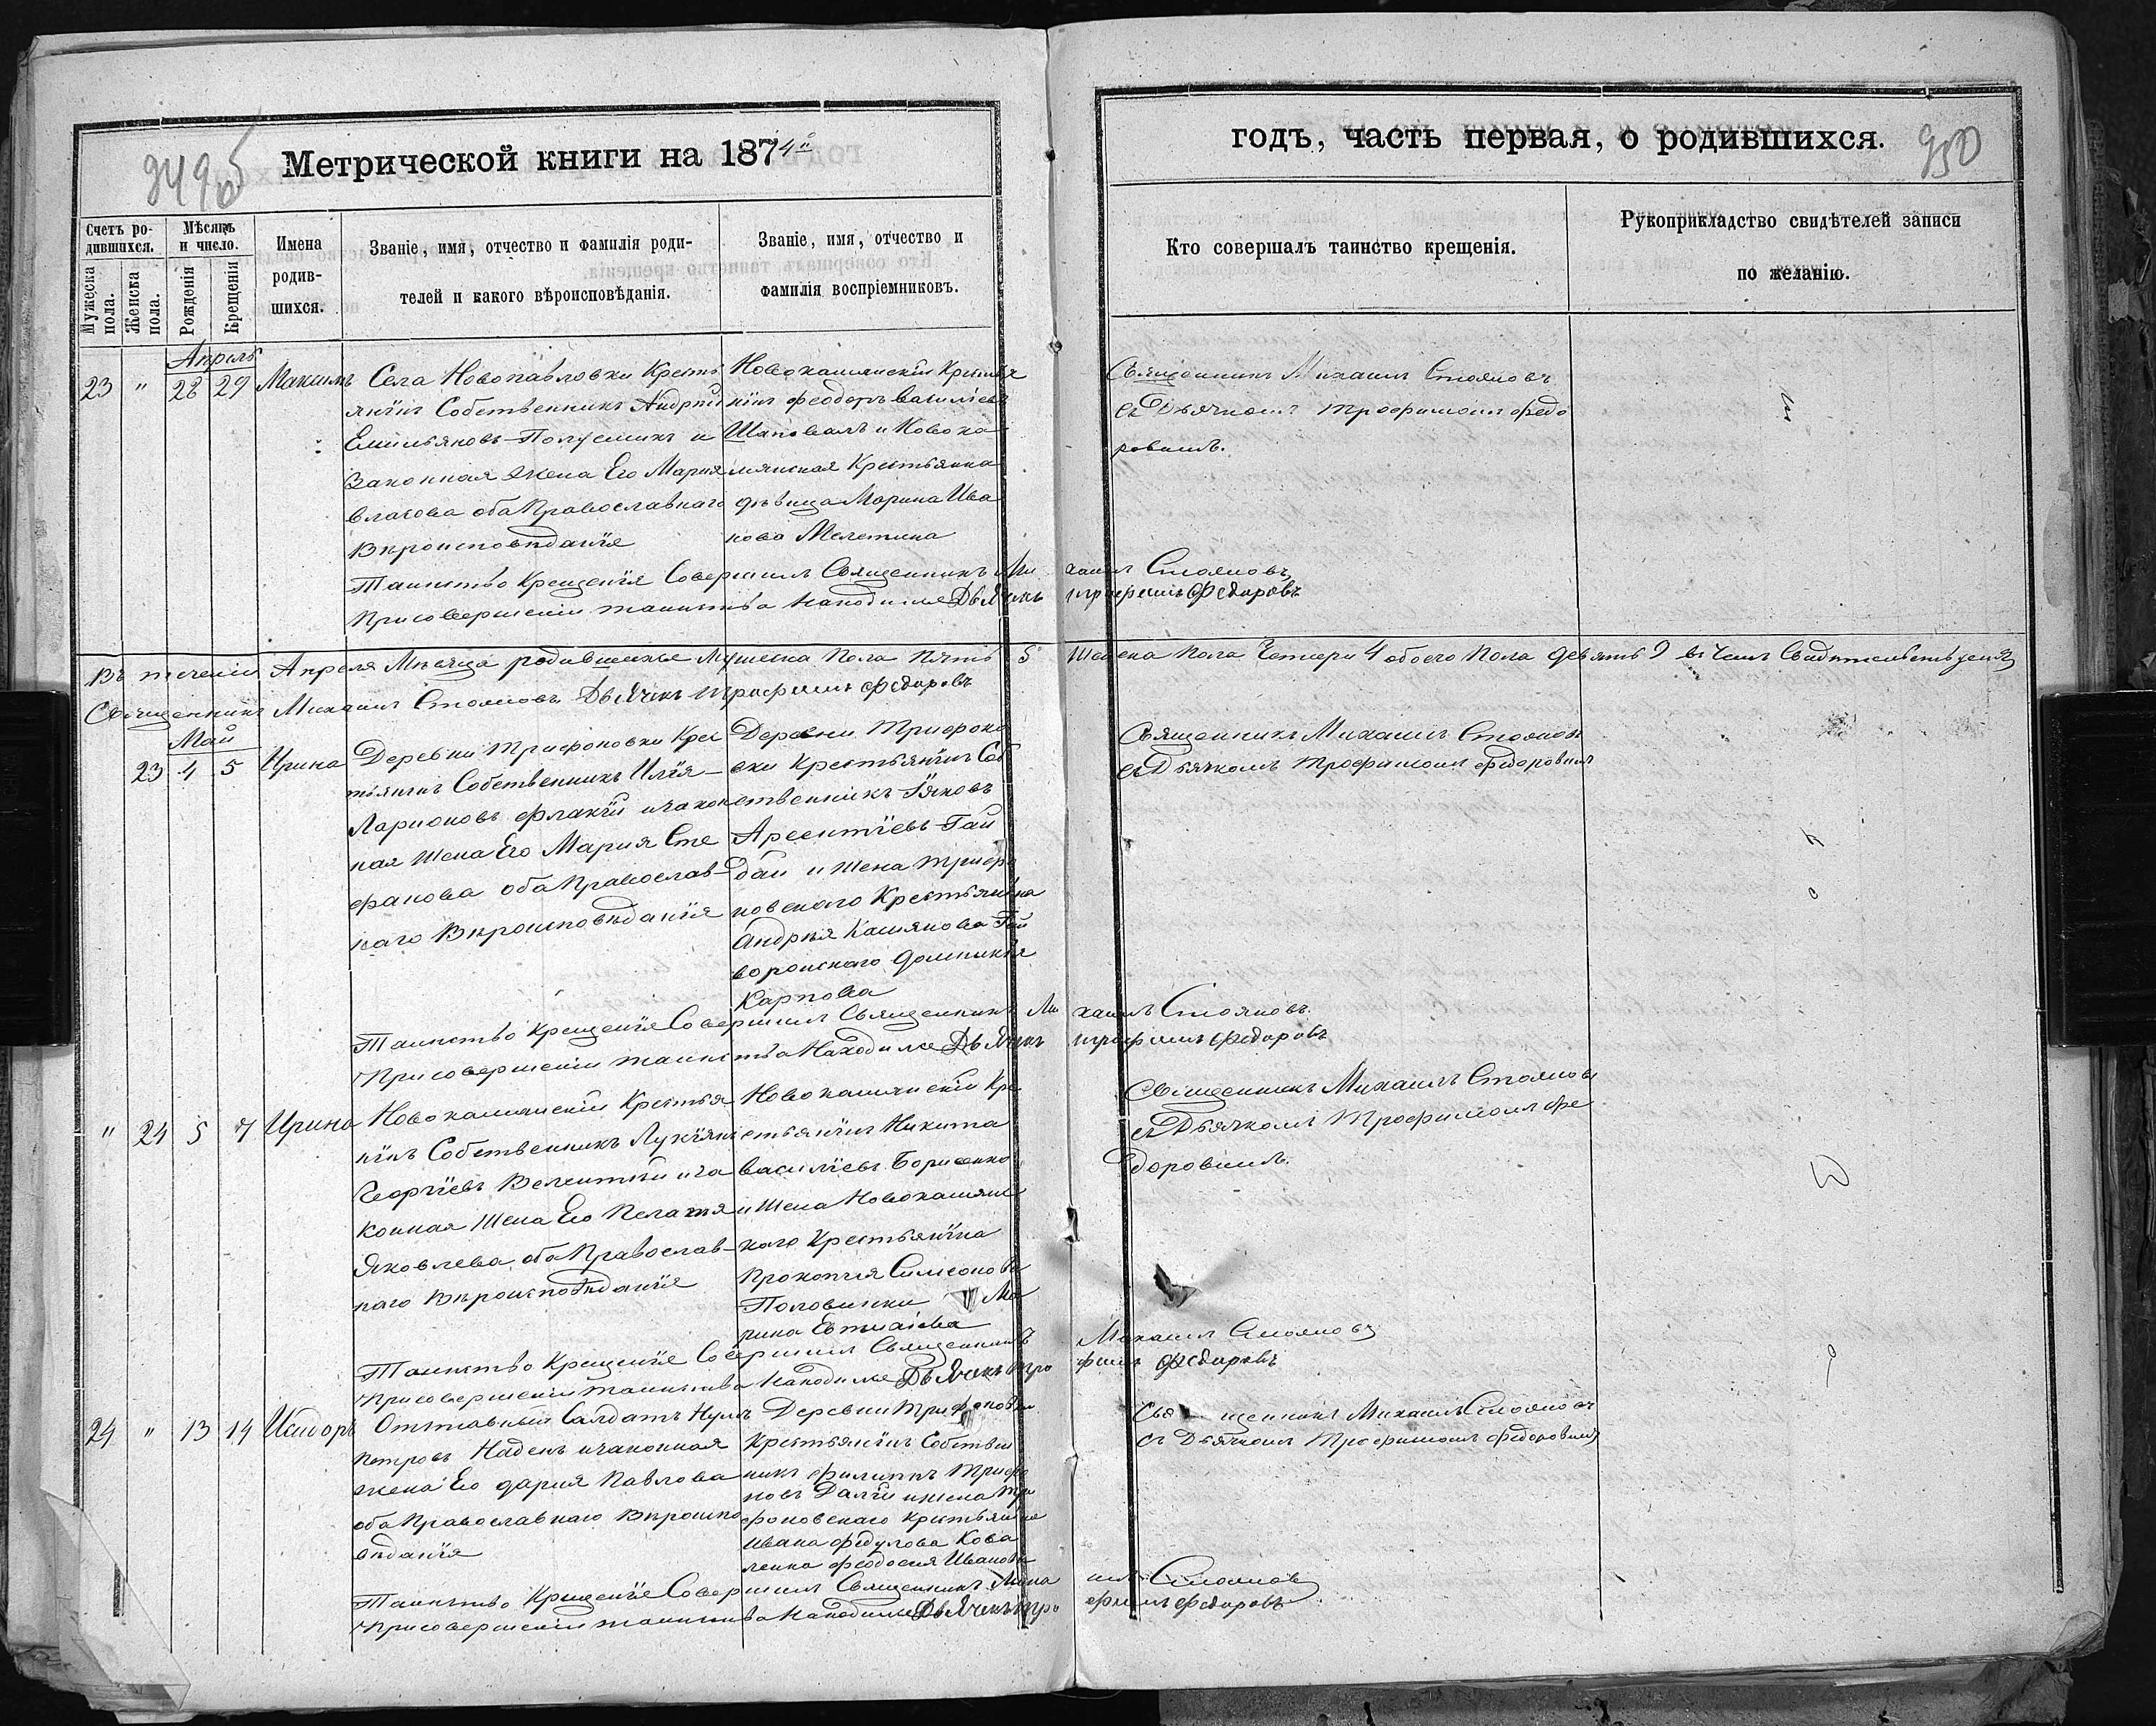 949
Метрической книги на 1874й
годъ, часть первая, о родившихся.
950
Счетъ родившихся.
Мужеска пола.
Женска пола.
Мѣсяцъ и число.
Рожденія
Крещенія
Имена родившихся.
Званіе, имя, отчество и фамилія родителей и какого вѣроисповѣданія.
Званіе, имя, отчество и фамилія воспріемниковъ.
Кто совершалъ таинство крещенія.
Рукоприкладство свидѣтелей записи по желанію.
Апрель
23 " 28 29 Максимъ
Села Новопавловки Кресть
янинъ Собственникъ Андрей
Емельяновъ
и
Законная жена Его Мария
Власова оба Православнаго
Вѣроисповѣдания
Новокамянский Крестья
нинъ Феодоръ Василіевъ
Шаповалъ и Новока
мянская Крестьянка
дѣвица Марина Ива
нова Мелетина
Священникъ Михаилъ Стояновъ
съ Дьячкомъ Трофимомъ Федо
ровымъ.
Таинство Крещения Совершилъ Священникъ Михаилъ Стояновъ
При совершении таинства Находился Дьячекъ Трофимъ Федоровъ
Въ течении Апреля Месяца родившихся Мужеска Пола Пять 5 Женска Пола Четыри 4 обоего Пола девять 9 в чем Свидетельствуемъ
Священникъ Михаилъ Стояновъ Дьячекъ Трофимъ Федоровъ
Май
23 4 5 Ирина
Деревни Трифоновки Крес
тьянинъ Собственникъ Илия
Ларионовъ и закон
ная жена Его Мария Сте
фанова оба Православ
наго Вѣроисповѣдания
Деревни Трифоно
вки Крестьянинъ Соб
ственникъ Яковъ
Арсентиевъ Гай
дай и жена Трифо
новского Крестьянина
Андрея Касиянова Гай
воронскаго Домникия
Карпова
Священникъ Михаилъ Стояновъ
съ Дьячкомъ Трофимомъ Федоровымъ
Таинство Крещения Совершилъ Священникъ Михаилъ Стояновъ.
При совершении таинства Находился Дьячекъ Трофимъ Федоровъ
" 24 5 7 Ирина
Новокамянский Крестья
нинъ Собственникъ Лукиянъ
Георгиевъ и за
конная жена Его Пелагия
Яковлева оба Православ
наго Вѣроисповѣдания
Новокамянский Кре
стьянинъ Никита
Василиевъ Борисенко
и жена Новокамянс
каго Крестьянина
Прокопия Симеонова
Половинки Ма
рина Евтихиева
Священникъ Михаилъ Стояновъ
съ Дьячкомъ Трофимомъ Фе
доровымъ.
Таинство Крещения Совершилъ Священникъ Михаилъ Стояновъ
При совершении таинства Находился Дьячекъ Трофимъ Федоровъ
24 " 13 14 Исидоръ
Отставный Салдатъ Наумъ
Петровъ Наденъ и законная
жена Его Дария Павлова
оба Православнаго Вѣроиспо
вѣдания
Деревни Трифоновки
Крестьянинъ Собствен
никъ Филиппъ Трифо
новъ и жена Три
фоновскаго Крестьянина
Ивана Федулова Кова
ленка Феодосия Иванова
Священникъ Михаилъ Стояновъ
съ Дьячкомъ Трофимомъ Федоровымъ
Таинство Крещение Совершилъ Священникъ Михаилъ Стояновъ
При совершении таинства Находился Дьячекъ Трофимъ Федоровъ